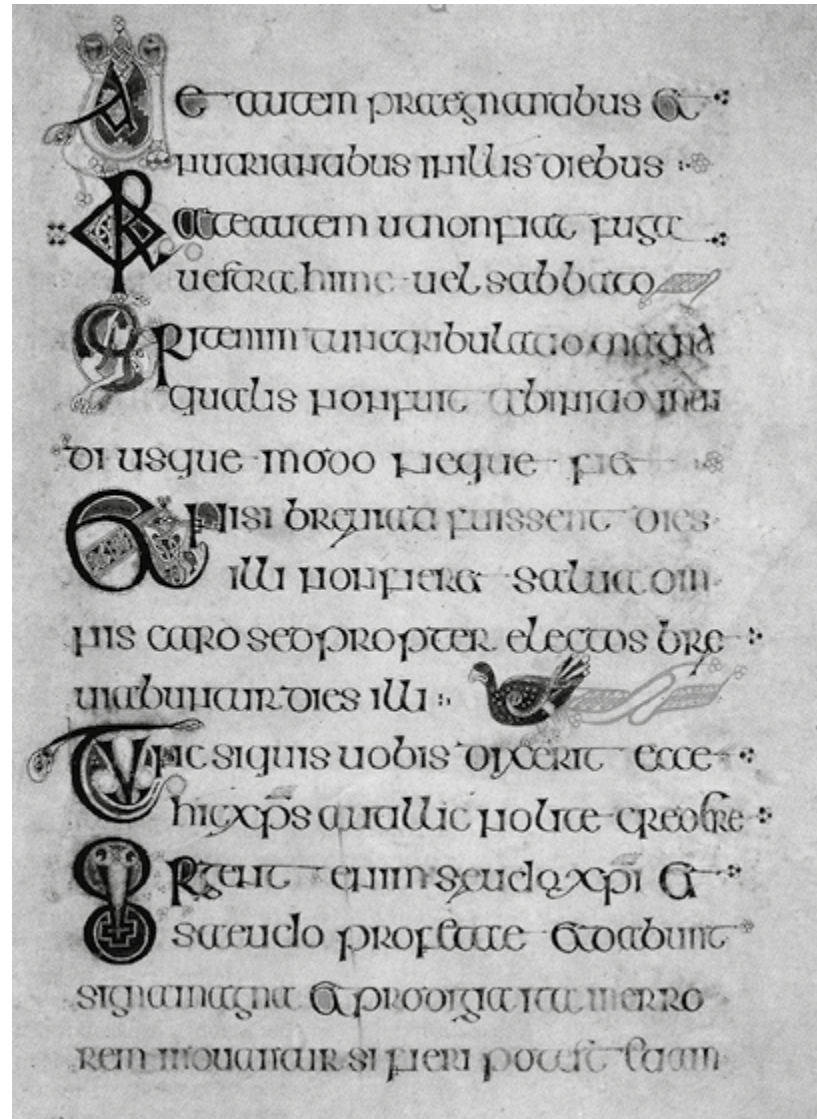 Uae autem praegnantibus et
nutriantibus in illis diebus
Orate autem ut non fiat fuga
uestra hime uel sabbato
Erit enim tunc tribulatio magna
qualis non fuit ab initio mun
di usque modo neque fiet
Et nisi breuiati fuissent dies
illi non fieret salua om
nis caro sed propter electos bre
uiabuntur dies illi
Tunc si quis uobis dixerit ecce
hic xps aut illic nolite credere
Surgent enim seudo xpi et
saeudo profetae et dabunt
signa magna et prodigia ita ut in erro
rem mouantur si fieri potest etiam